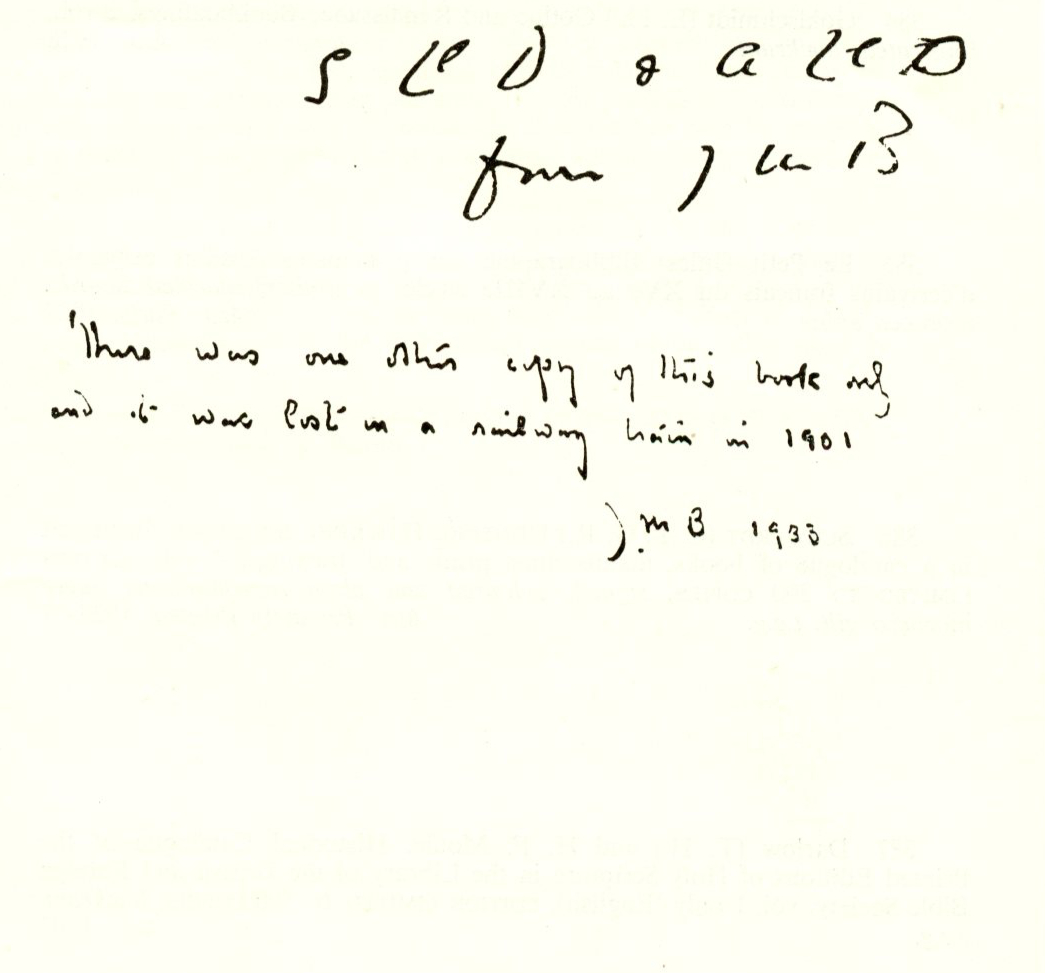 S L C D & A L C D
from J M B
There was one other copy of this book only
and it was lost in a railway train in 1901
J. M B 1933